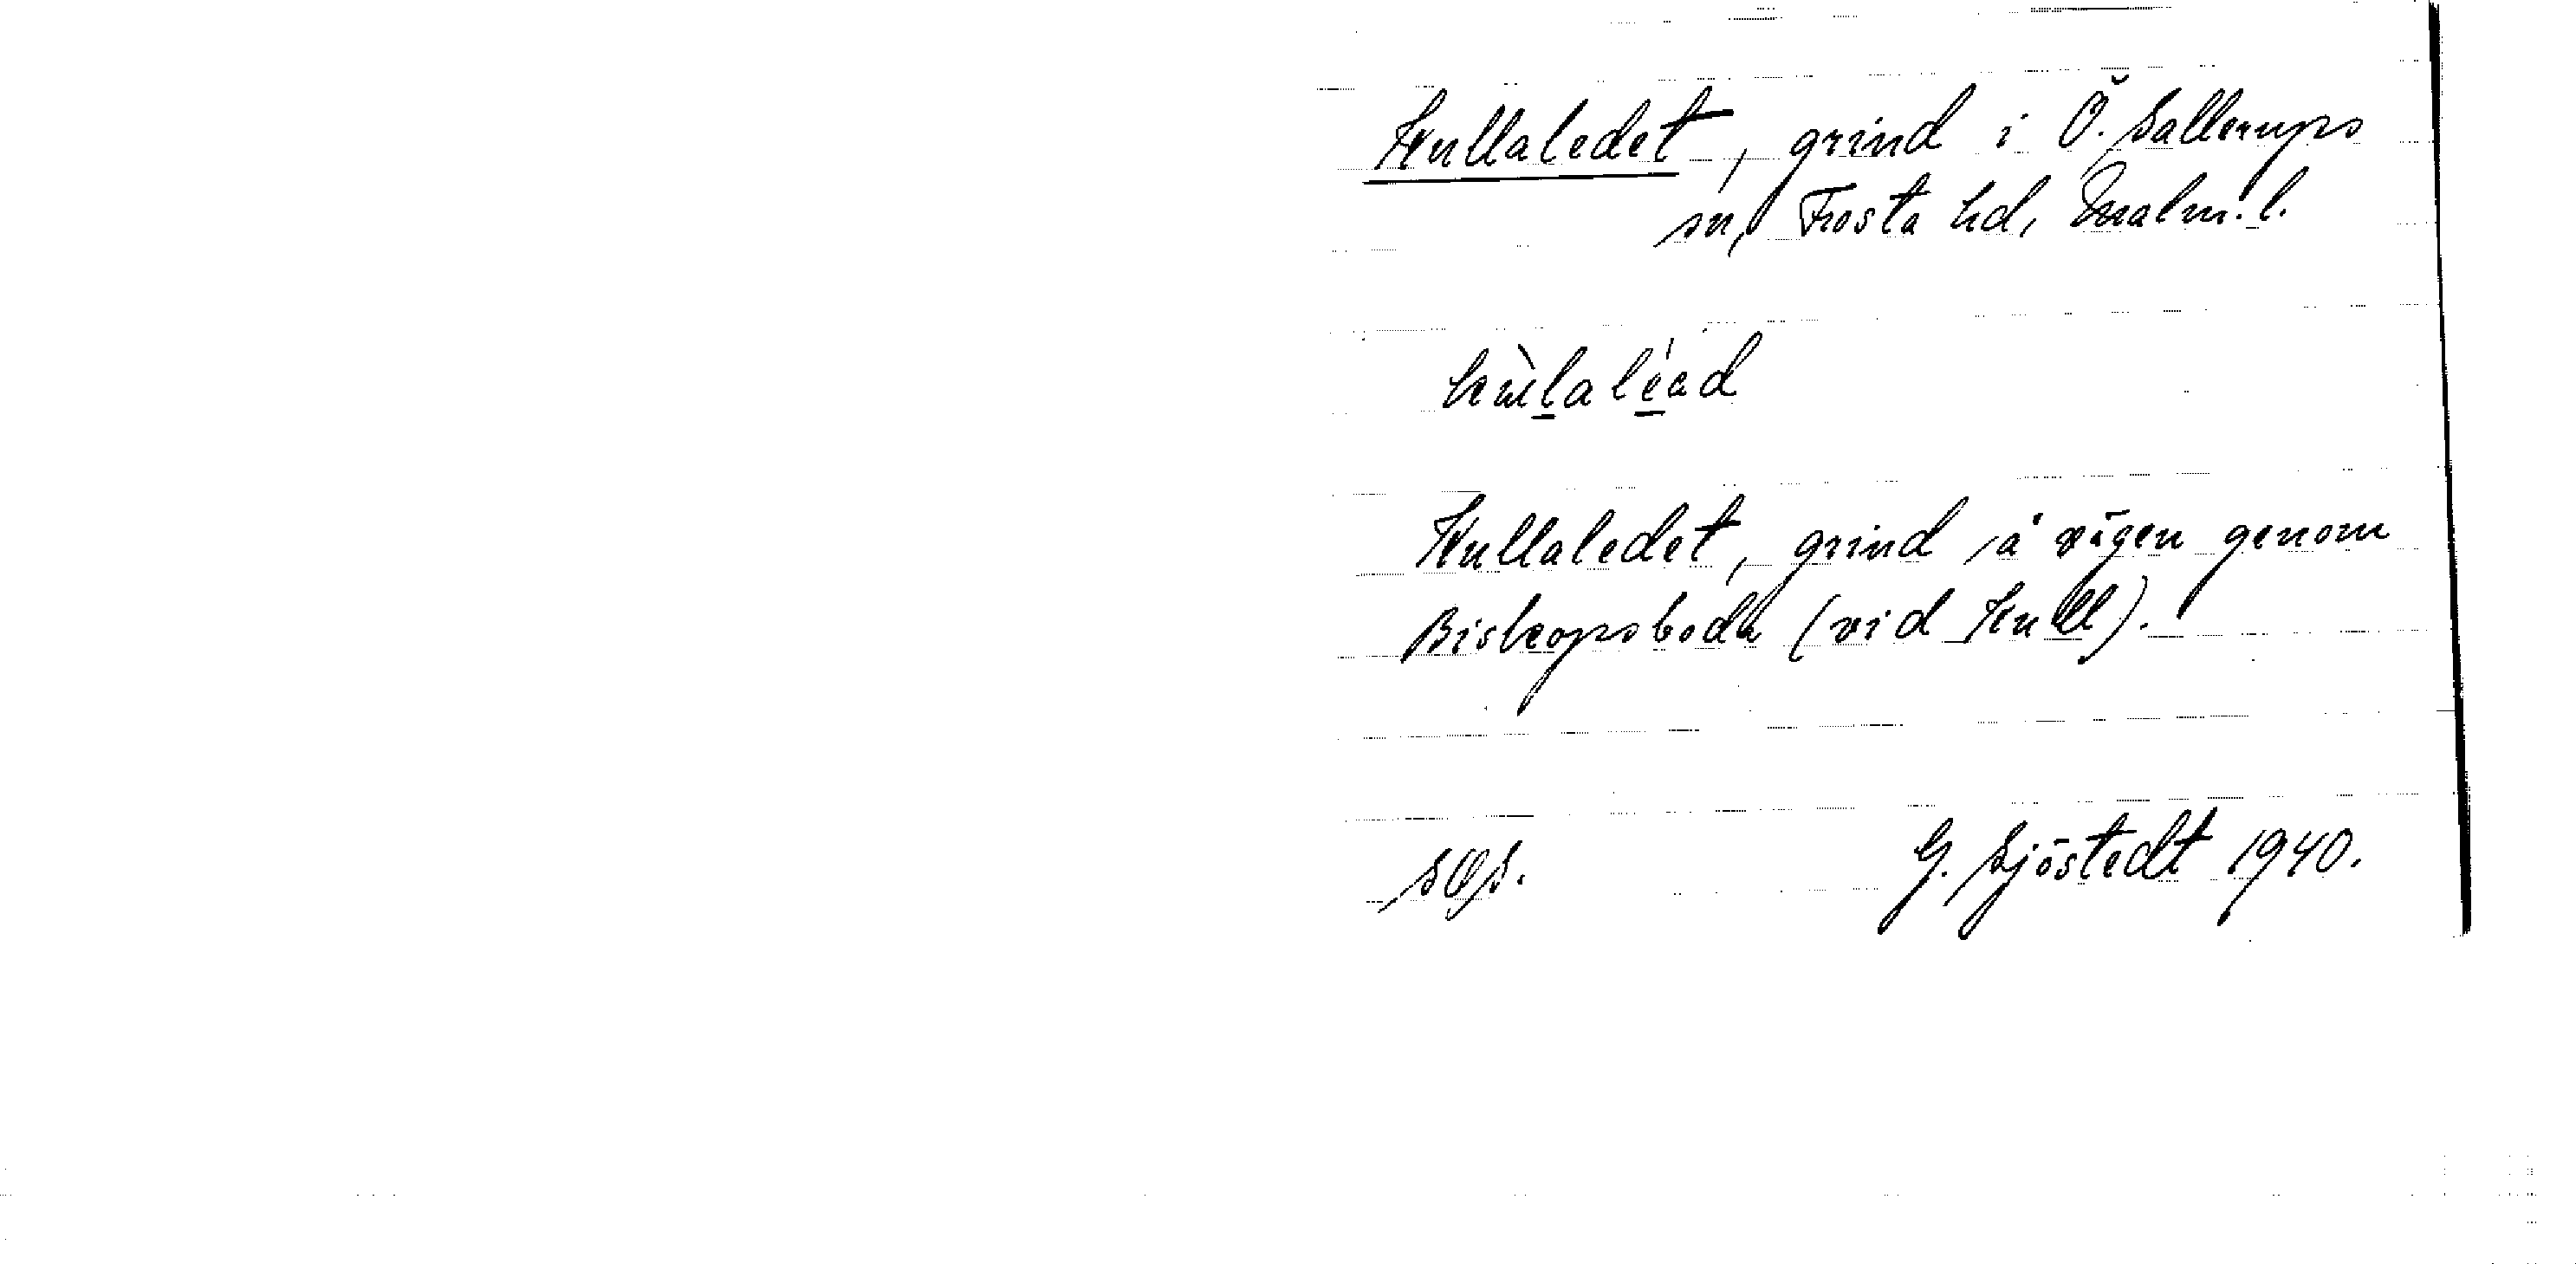 Kullaledet, grind i Ö. Sallerups
sn, Frosta hd, Malm. l.
kùlaléad
Kullaledet, grind å vägen genom
Biskopsboda (vid Kull).
SOS.
G. Sjöstedt 1940.